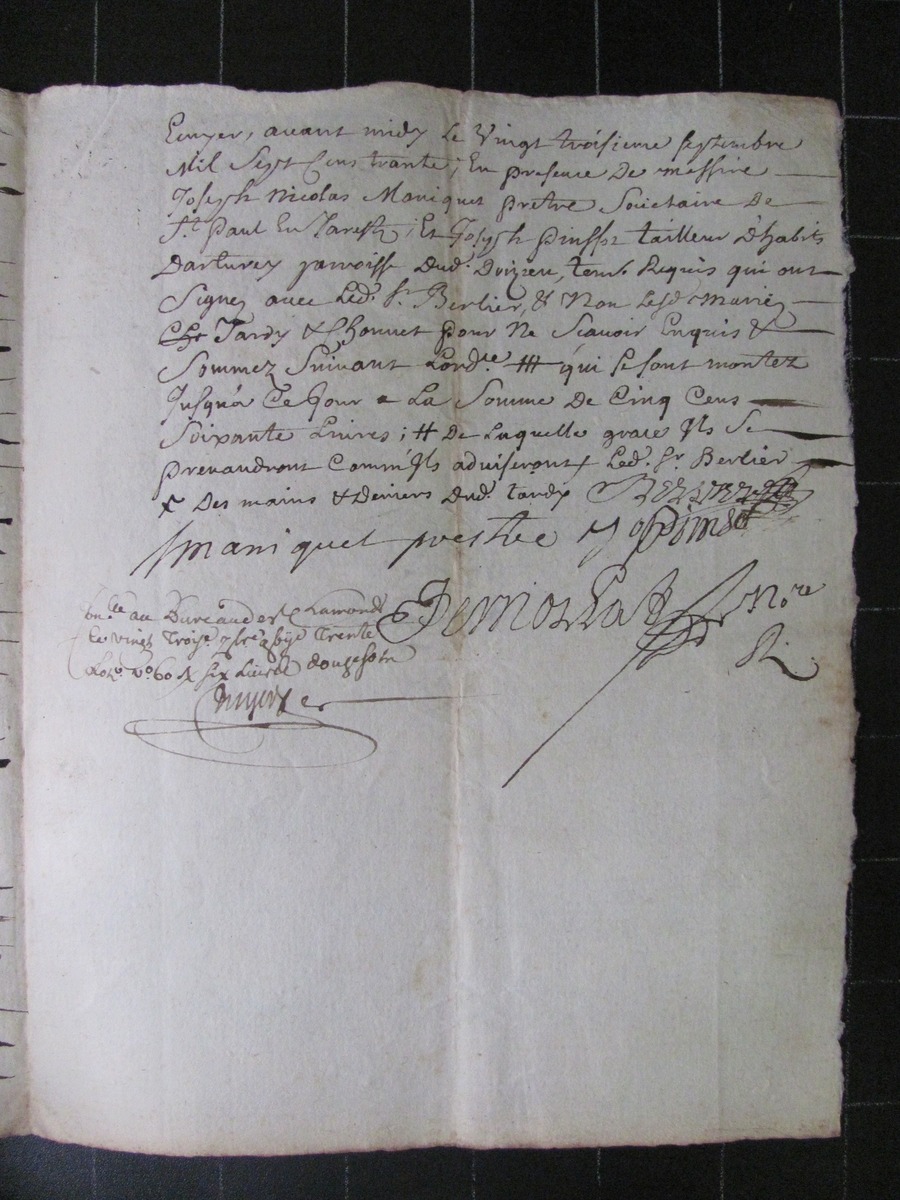 avant midy le Vingt troisieme septembre
Mil Sept Cens trante, En presence De messire
Joseph Nicolas Maniquet pretre Societaire De
St. paul En Jarestz, Et Joseph pinsst tailleur D'habits
parroisse Dud. Doizieu, tem. Requis qui ont
Signez avec Led. Sr. Berlier, & Non Lesd. Mariez
Tardy & Chonnet pour Ne Scavoir Enquis &
Sommez Suivant Lordce # qui se sont montez
Jusqu'a Ce Jour a La Somme De Cinq Cens
Soixante Livres ; # De Laquelle grace Ils Se
prevaudront Comm'Ils adviseront x Led. Sr. Berlier
x Des mains & Deniers Dud. tardy Berlier
maniquet prestre J pinset
au Bureau de St Chamond Nore
Le vingt Trois. 7bre Trente
six Livres douze sols